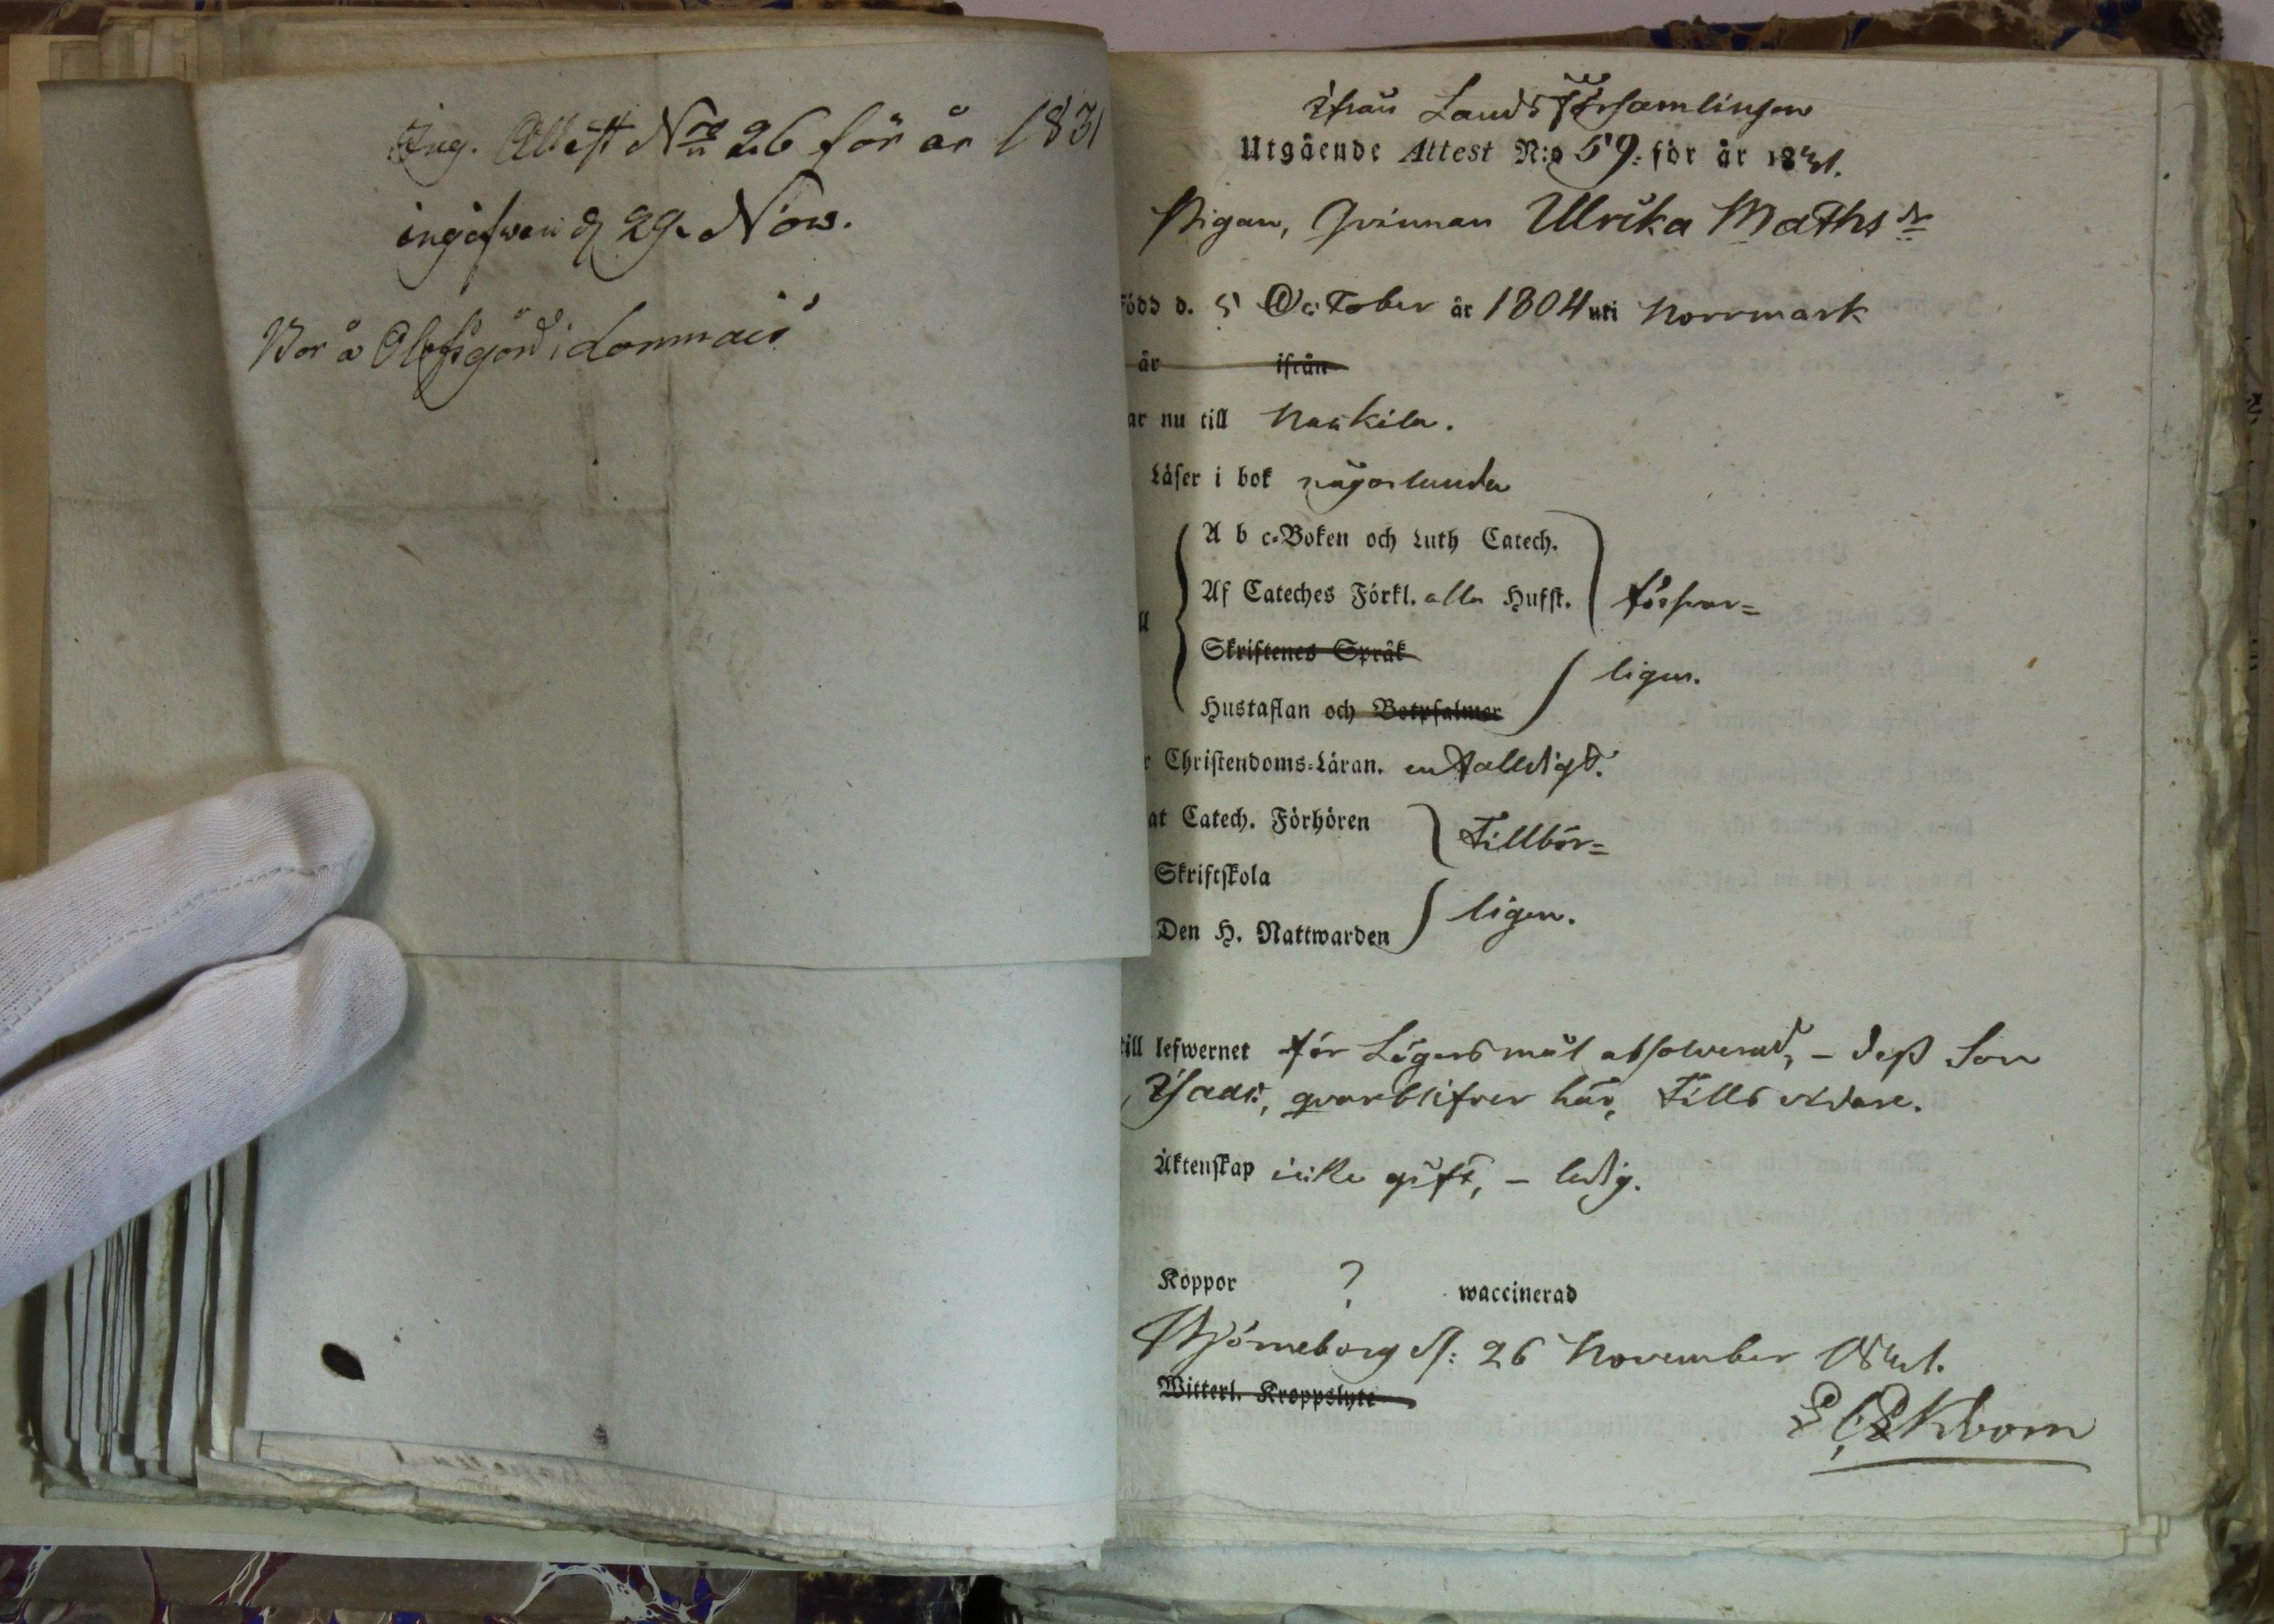 Ing. Attest Nro 26 för år 1831
ingifwen d 29. Nov.
Bor å Olofsgård i Lammais
ifrån Lands Församlingen
Utgående Attest N:o 59: för år 1831.
Pigan, Qvinnan Ulrika Mathsdr
Född d. 5 October år 1804 uti Norrmark
år ifrån
ar nu till Nakkila.
Läser i bok någorlunda
A b c-Boken och Luth Catech.
Af Cateches Förkl. alla Hufst. försvar=
Skriftenes Språk
ligen.
Hustaflan och Botpsalmer
Christendoms-Läran. enfalldigt.
at Catech. Förhören Tillbör=
Skriftskola
Den H. Nattwarden ligen.
till lefwernet för Lägersmål absolverad, – dess Son
Isaac, qvarblifver här, tills vidare.
Äktenskap icke gift, – ledig.
Koppor ? waccinerad
Björneborg d: 26 November 1831.
Witterl. Kroppslyte
Ekbom